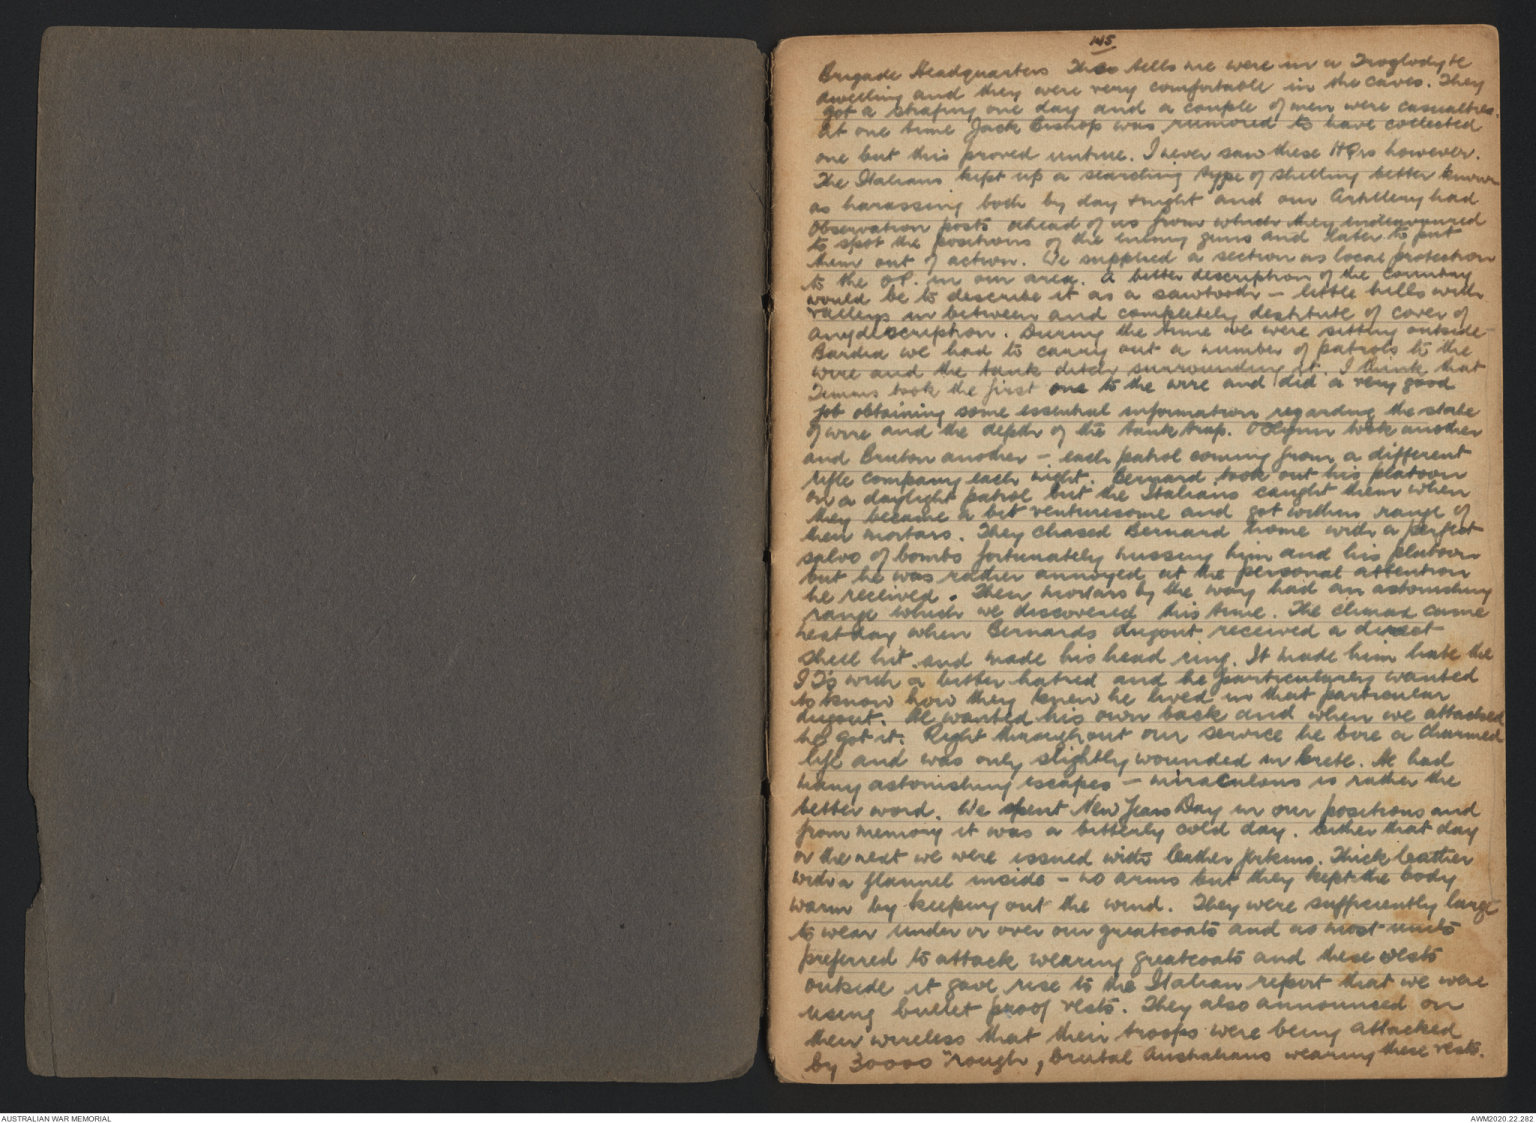 145
Brigade Headquarters Theo tells me were in a Troglodyte
dwelling and they were very comfortable in the caves. They
got a strafing one day and a couple of men were casualties.
At one time Jack Bishop was rumored to have collected
one but this proved untrue. I never saw these HQrs however.
The Italians kept up a searching type of shelling better known
as harassing both by day & night and our Artillery had
Observation posts ahead of us from which they endeavoured
to spot the positions of the enemy guns and later to put
them out of action. We supplied a section as local protection
to the O.P. in our area. A better description of the country
would be to describe it as a sawtooth - little hills with
valleys in between and completely destitute of cover of
any description. During the time we were sitting outside
Bardia we had to carry out a number of patrols to the
wire and the tank ditch surrounding it. I think that
took the first one to the wire and did a very good
job obtaining some essential information regarding the state
of wire and the depth of the tank trap. took another
and Bruton another - each patrol coming from a different
rifle company each night. Bernard took out his platoon
on a daylight patrol but the Italians caught them when
they became a bit venturesome and got within range of
their mortars. They chased Bernard home with a perfect
salvo of bombs fortunately missing him and his platoon
but he was rather annoyed at the personal attention
he received. Their mortars by the way had an astonishing
range which we discovered this time. The climax came
next day when Bernards dugout received a direct
shell hit and made his head ring. It made him hate the
I Ts with a bitter hatred and he particularly wanted
to know how they knew he lived in that particular
dugout. He wanted his own back and when we attacked
he got it. Right throughout our service he bore a charmed
life and was only slightly wounded in Crete. He had
many astonishing escapes - miraculous is rather the
better word. We spent New Years Day in our positions and
from memory it was a bitterly cold day. Either that day
or the next we were issued with leather jerkins. Thick leather
with a flannel inside - no arms but they kept the body
warm by keeping out the wind. They were sufficiently large
to wear under or over our greatcoats and as most units
preferred to attack wearing greatcoats and these vests
outside it gave rise to the Italian report that we were
using bullet proof vests. They also announced on
their wireless that their troops were being attacked
by 30000 "rough, brutal Australians wearing these vests.
AUSTRALIAN WAR MEMORIAL
AWM2020.22.282